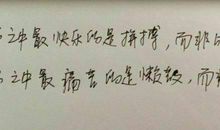 之中最快乐的是拼搏，而非
之中最痛苦的是懒散，而